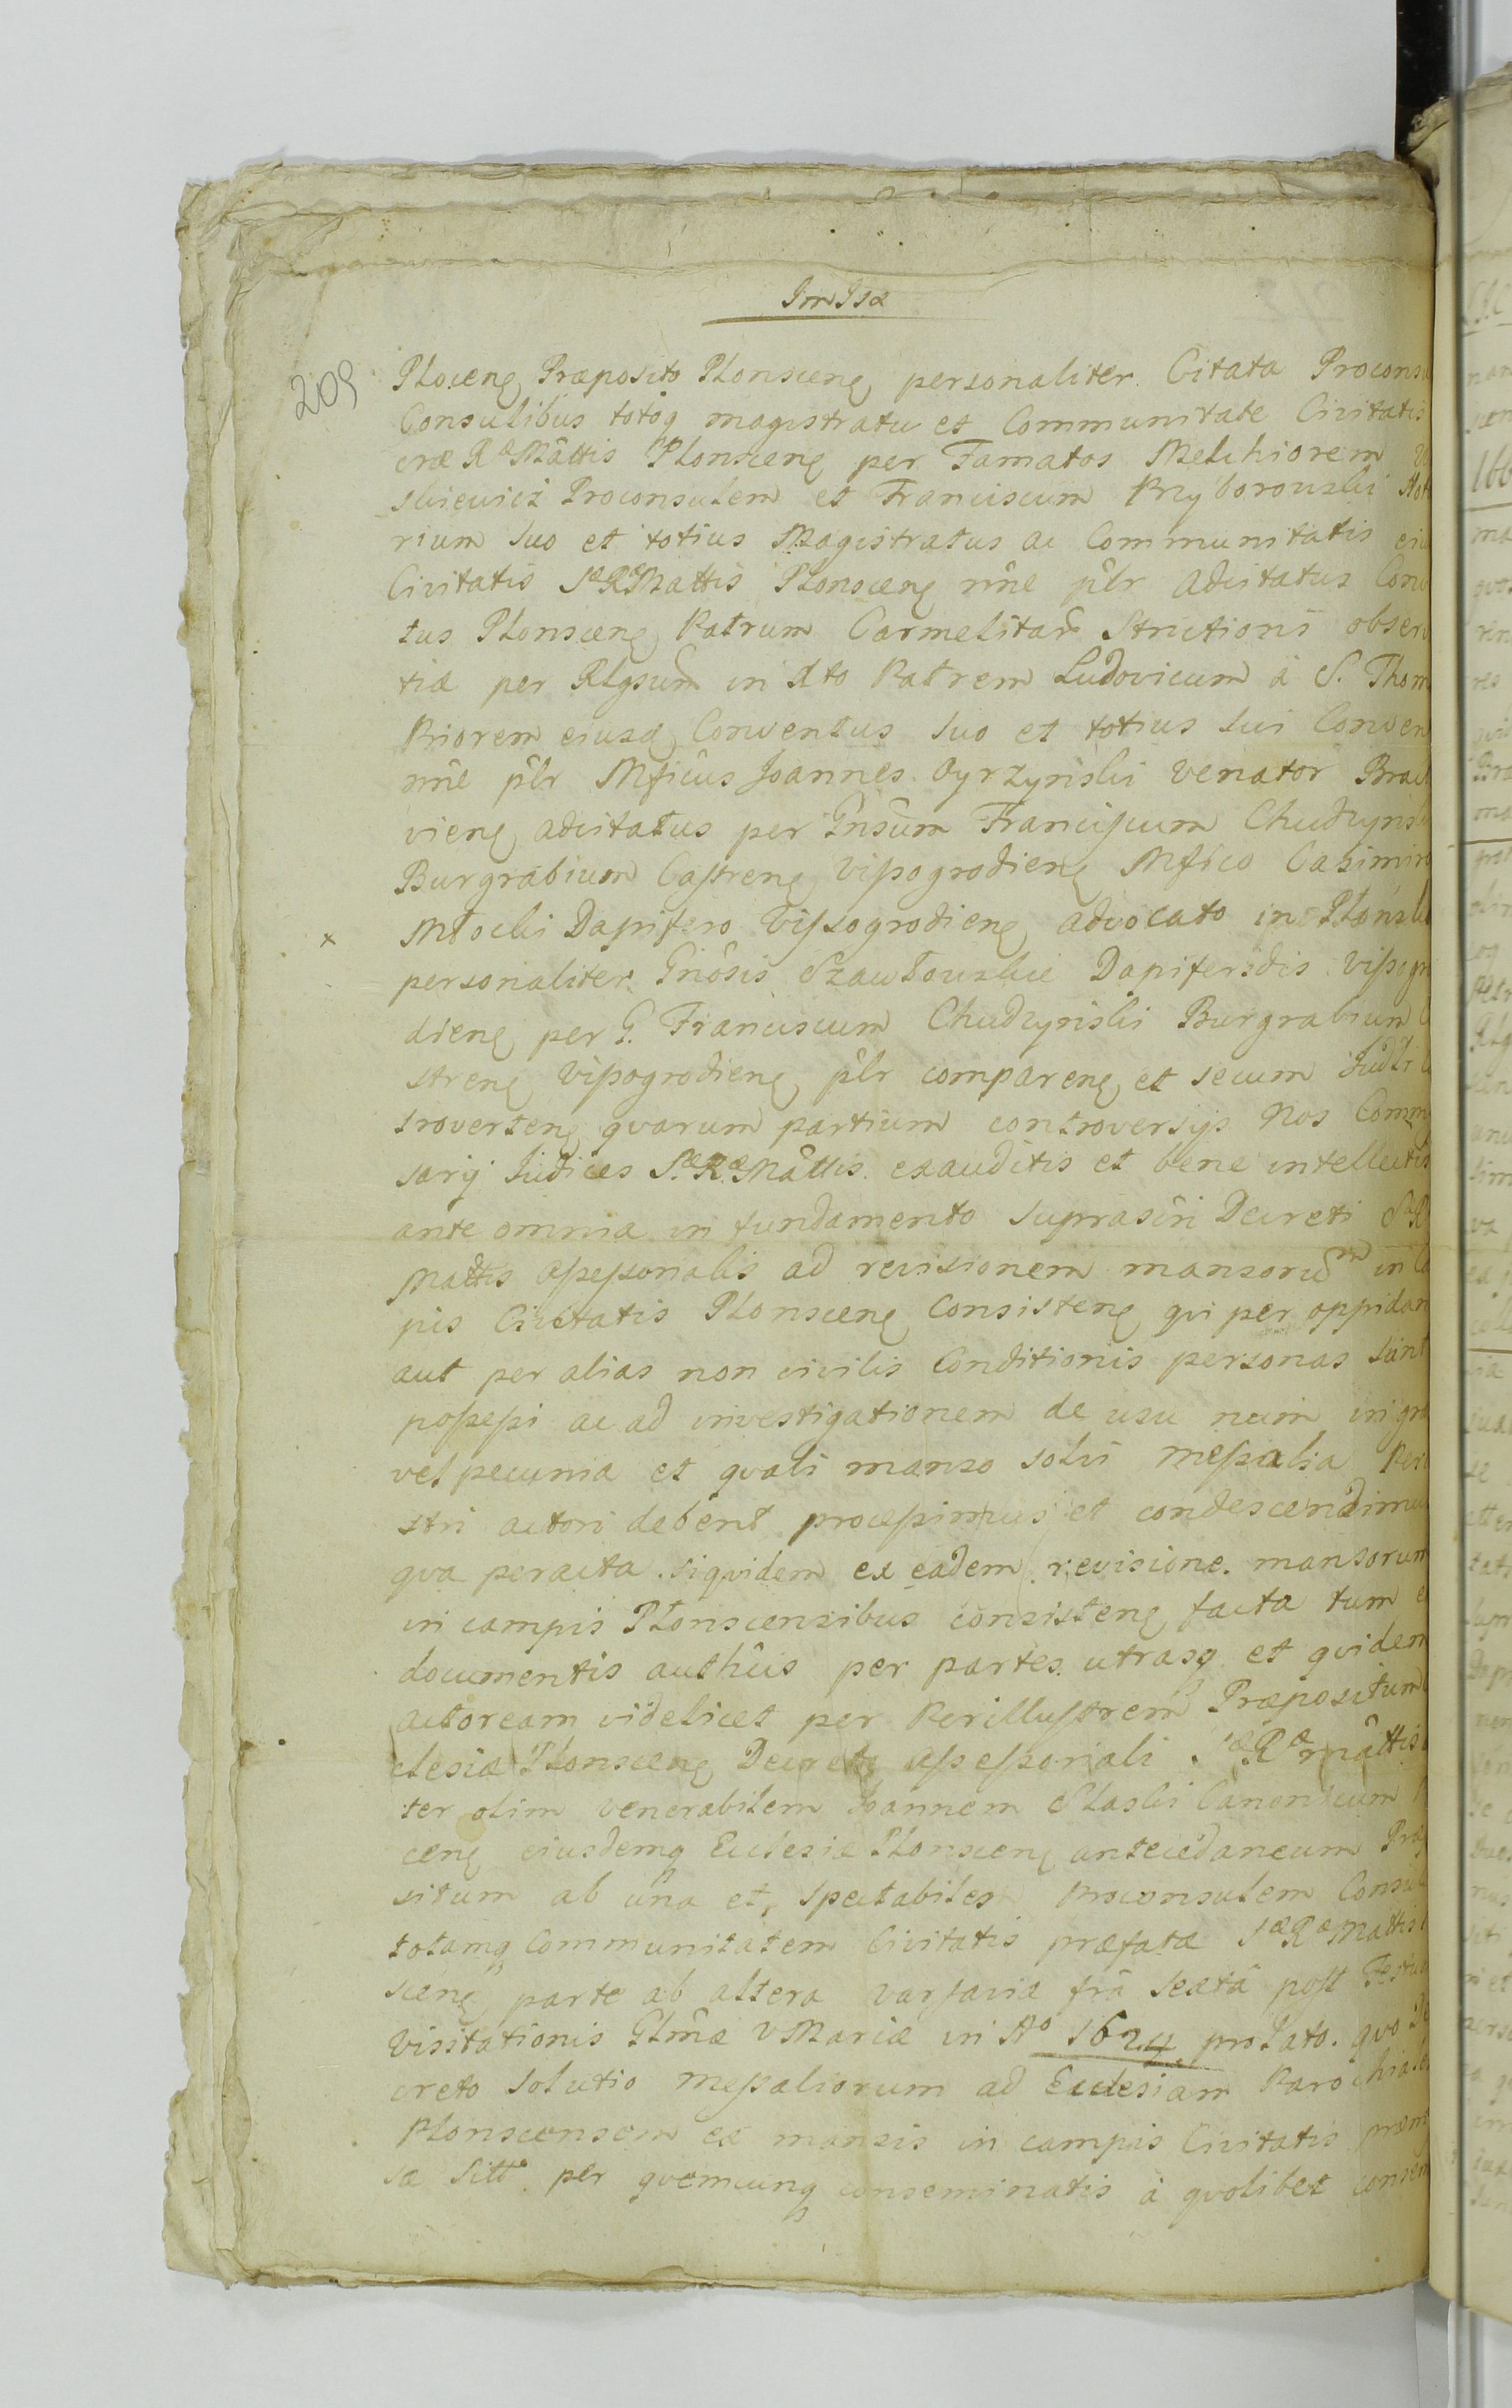 Im Jsæ
209
Ploceng Præposito Plonsceng personaliter. Citata Procons
Consulibus totoq magistratu et Communitate Civitatis
cræ Ræ Mâttis Plonsceng per Famatos Melchiorem
skiewicz Proconsulem et Franciscum Przyborowski Not
rium suo et totius Magistratus ac Communitatis eiu
Civitatis Sæ Ræ Mattis Plonsceng nñe plr Adcitatus Conv
tus Plonsceng Patrum Carmelitarũ Strictioris observ
tiæ per Rlgsum in Xto Patrem Ludovicum à S. Thom
Priorem eiusq Conventus suo et totius sui Conven
nñe plr Mficus Joannes Oyrzynski Venator Brac
vieng adcitatus per Gnsum Franciscum Chudzynsk
Burgrabium Castreng Vissogrodieng Mfico Casimiro
x Młocki Dapifero Vissogrodieng advocato in Płonsk
personaliter Gnôsis Szawłowskie Dapiferidis Vissogr
dieng per G. Franciscum Chudzynski Burgrabium
streng Vissogrodieng plr compareng et secum Iudli
troverteng quarum partium controversijs Nos Comm
sarij Iudices Sæ Ræ Mâttis exauditis et bene intellectis
ante omnia in fundamento suprascri Decreti Sæ R
Mattis Assessorialis ad revisionem mansorum in Ca
pis Civitatis Plonsceng Consisteng qui per oppidan
aut per alias non civilis Conditionis personas sunt
possessi ac ad investigationem de usu num in gra
vel pecunia et quali manso solvi Messalia Peri
stri actori debent processimus et condescendimus
qua peracta siquidem ex eadem revisione mansorum
in campis Plonscensibus consisteng facta tum e
documentis authûs per partes utrasq et quidem
actoream videlicet per Perillustrem Præpositum
clesiæ Plonsceng Decreto Assessoriali Sæ Ræ mâttis
ter olim venerabilem Joannem Slaski Canonicum
ceng eiusdemq Ecclesiæ Plonsceng antecedaneum Præ
situm ab una et, Spectabiles Proconsulem Consul
totamq Communitatem Civitatis præfatæ Sæ Ræ Mattis
sceng parte ab altera Varsaviæ frâ Sextâ post Festu
Visitationis Glmæ V Mariæ in Aº 1624 prolato. quo De
creto solutio messaliorum ad Ecclesiam Parochiale
Plonscensem ex mansis in campis Civitatis præm
sæ Sitt per quemcunq conseminatis à quolibet conse